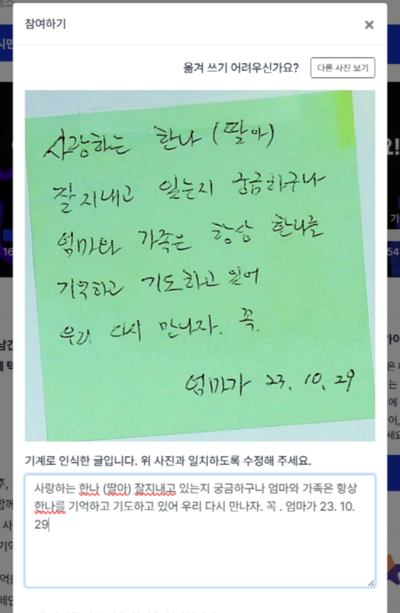 참여하기
×
옮겨 쓰기 어려우신가요?
다른 사진 보기
사랑하는 한나 (딸아)
잘지내고 있는지 궁금하구나
엄마와 가족은 항상 한나를
기억하고 기도하고 있어
우리 다시 만나자. 꼭.
엄마가 23. 10. 29
기계로 인식한 글입니다. 위 사진과 일치하도록 수정해 주세요.
사랑하는 한나 (딸아) 잘지내고 있는지 궁금하구나 엄마와 가족은 항상
한나를 기억하고 기도하고 있어 우리 다시 만나자. 꼭 . 엄마가 23. 10.
29